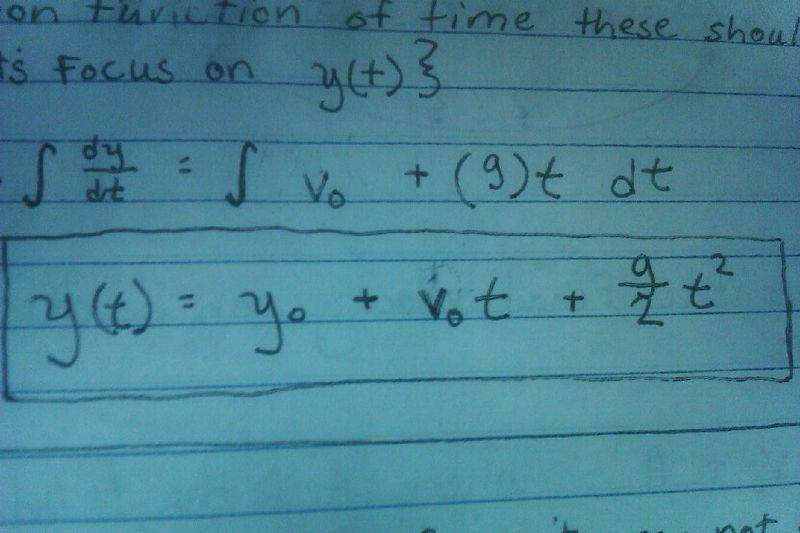 on function of time these shoul
t's Focus on y(t)}
∫ dy/dt = ∫ v₀ + (g)t dt
y(t) = y₀ + v₀t + g/2 t²
not